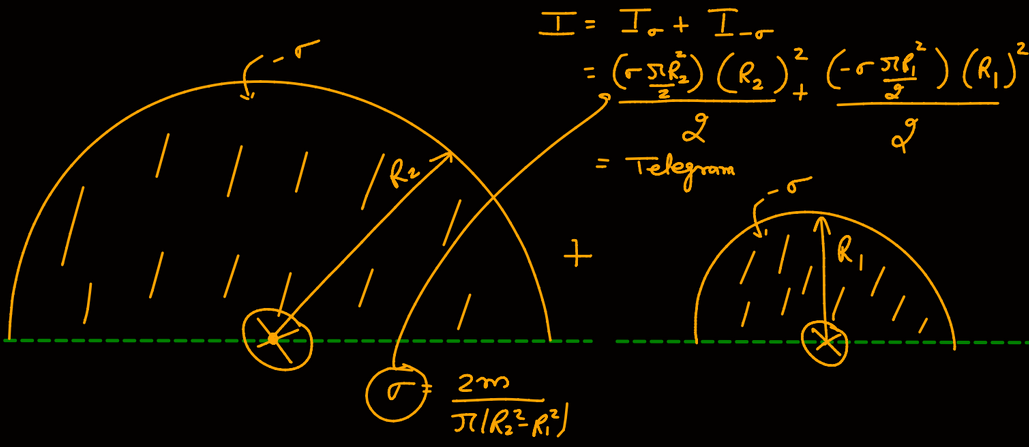 I = I_σ + I_-σ
= (σ πR₂²/2) (R₂)² / 2 + (-σ πR₁²/2) (R₁)² / 2
= Telegram
-σ
R₂
+
-σ
R₁
σ = 2m / π(R₂²-R₁²)